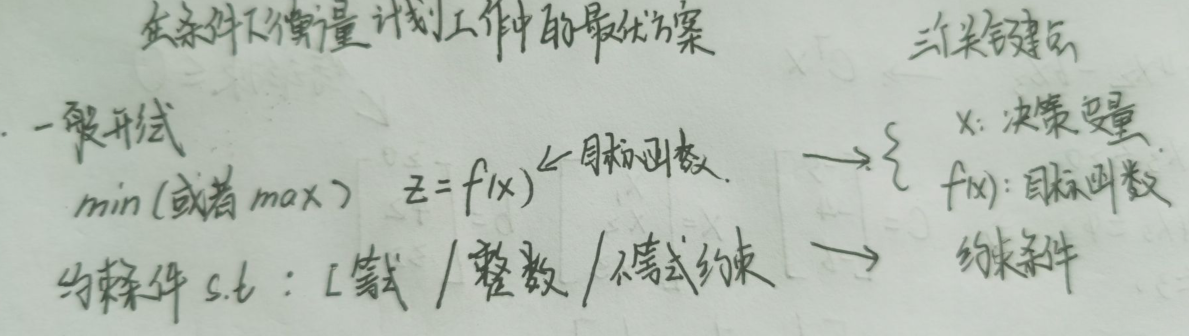 在条件下衡量计划工作中的最优方案
三个关键点
一般形式
min(或者max) z=f(x) ← 目标函数.
→ { x: 决策变量.
f(x): 目标函数
约束条件 s.t : [等式 / 整数 / 不等式约束 → 约束条件